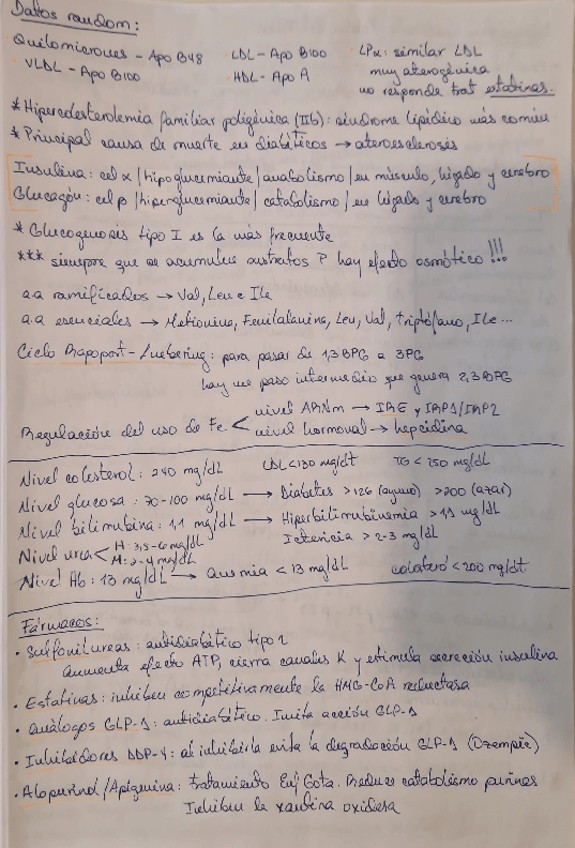 Datos random:
Quilomicrones - Apo B48   LDL - Apo B100   LPα: similar LDL
VLDL - Apo B100   HDL - Apo A   muy aterogénica
no responde trat estatinas.
* Hipercolesterolemia familiar poligénica (IIb): síndrome lipídico más común
* Principal causa de muerte en diabéticos → ateroesclerosis
Insulina: cel α / hipoglucemiante / anabolismo / en músculo, hígado y cerebro
Glucagón: cel β / hiperglucemiante / catabolismo / en hígado y cerebro
* Glucogenosis tipo I es la más frecuente
*** siempre que se acumulen sustratos P hay efecto osmótico!!!
a.a ramificados → Val, Leu e Ile
a.a esenciales → Metionina, Fenilalanina, Leu, Val, triptófano, Ile...
Ciclo Rapoport-Luebering: para pasar de 1,3 BPG a 3PG
hay un paso intermedio que genera 2,3 BPG
Regulación del uso de Fe < nivel ARNm → IRE y IRP1/IRP2
nivel hormonal → hepcidina
Nivel colesterol: 240 mg/dL   LDL <130 mg/dL   TG < 150 mg/dL
Nivel glucosa: 70-100 mg/dL → Diabetes >126 (ayuno) >200 (azar)
Nivel bilirrubina: 1,1 mg/dL → Hiperbilirubinemia >1,1 mg/dL
Ictericia > 2-3 mg/dL
Nivel urea < H: 3,5-6 mg/dL
M: 2-4 mg/dL
Nivel Hb: 13 mg/dL → anemia < 13 mg/dL   <200 mg/dt
Fármacos:
· Sulfonilureas: antidiabético tipo 2
Aumenta efecto ATP, cierra canales K y estimula secreción insulina
· Estatinas: inhiben competitivamente la HMG-CoA reductasa
· Análogos GLP-1: antidiabético. Imita acción GLP-1
· Inhibidores DDP-4: al inhibirla evita la degradación GLP-1 (Ozempic)
· Alopurinol/Apigenina: tratamiento Enf Gota. Reduce catabolismo purinas
Inhiben la xantina oxidasa